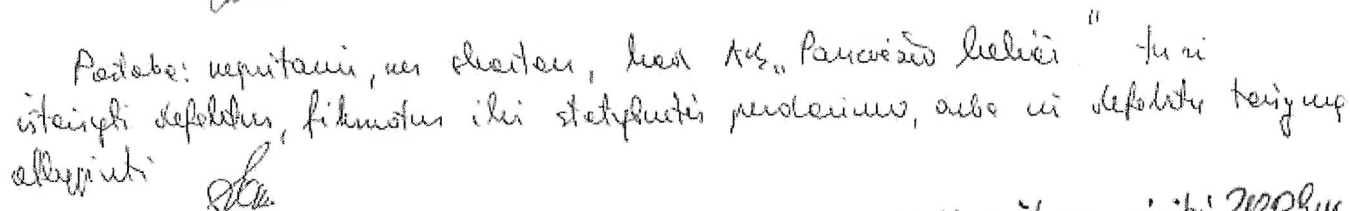 Pastaba: nepritariu, nes skaitau, kad AB „Panevėžio keliai“ turi
ištaisyti defektus, fiksuotus iki statybvietės perdavimo, arba už defektų taisymą
atlyginti